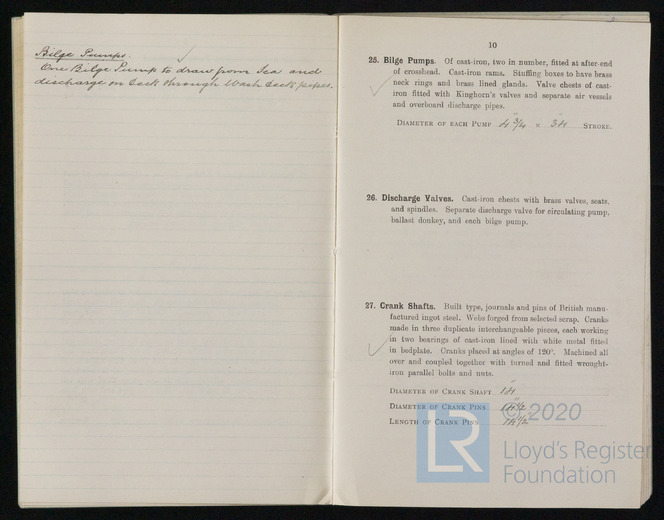 Bilge Pumps.
One Bilge Pump to draw from Sea and
discharge on Deck through Wash Deck pipes.
10
25. Bilge Pumps. Of cast-iron, two in number, fitted at after-end
of crosshead. Cast-iron rams. Stuffing boxes to have brass
neck rings and brass lined glands. Valve chests of cast-
iron fitted with Kinghorn's valves and separate air vessels
and overboard discharge pipes.
DIAMETER OF EACH PUMP 4 3/4" × 34" STROKE.
26. Discharge Valves. Cast-iron chests with brass valves, seats,
and spindles. Separate discharge valve for circulating pump,
ballast donkey, and each bilge pump.
27. Crank Shafts. Built type, journals and pins of British manu-
factured ingot steel. Webs forged from selected scrap. Cranks
made in three duplicate interchangeable pieces, each working
in two bearings of cast-iron lined with white metal fitted
in bedplate. Cranks placed at angles of 120°. Machined all
over and coupled together with turned and fitted wrought-
iron parallel bolts and nuts.
DIAMETER OF CRANK SHAFT 14"
DIAMETER OF CRANK PINS 14 1/2"
LENGTH OF CRANK PINS 14 1/2"
LR © 2020
Lloyd's Register
Foundation